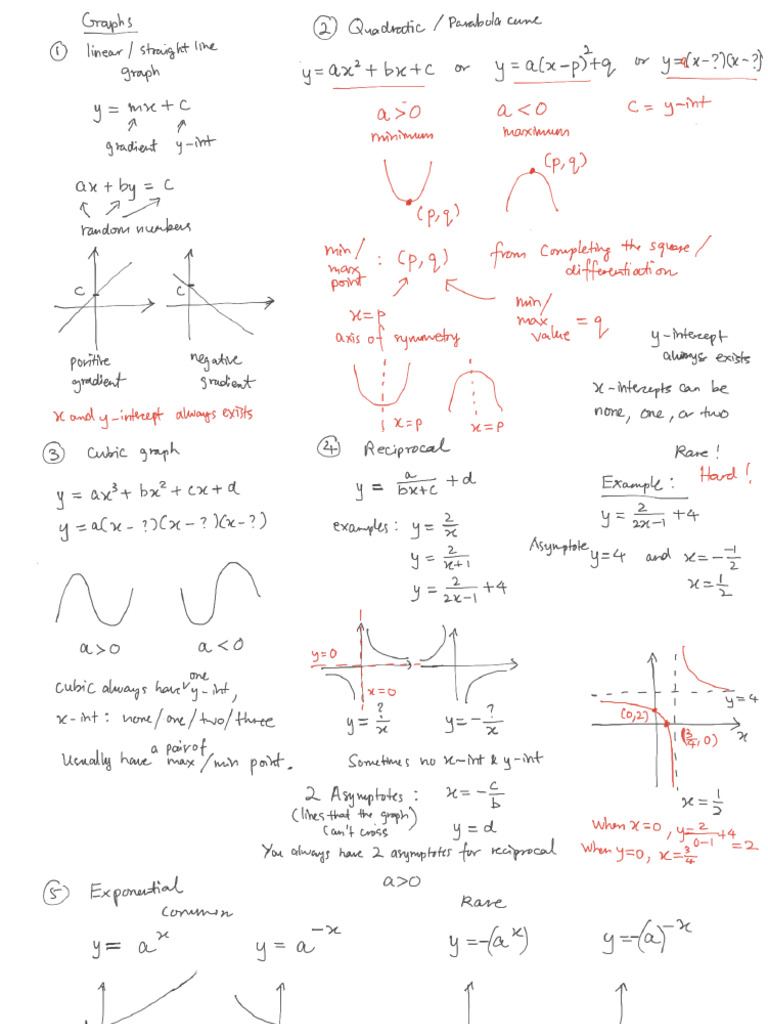 Graphs
① linear / straight line
graph
y = mx + c
gradient y-int
ax + by = c
random numbers
c
c
positive
gradient
negative
gradient
x and y-intercept always exists
② Quadratic / Parabola curve
y = ax² + bx + c or y = a(x-p)² + q or y = a(x-?)(x-?)
a > 0
minimum
a < 0
maximum
c = y-int
(p, q)
(p, q)
min/
max
point : (p, q)
from completing the square /
differentiation
x = p
axis of symmetry
min/
max
value = q
x = p
x = p
y-intercept
always exists
x-intercepts can be
none, one, or two
③ Cubic graph
y = ax³ + bx² + cx + d
y = a(x-?)(x-?)(x-?)
a > 0
a < 0
Cubic always have one y-int,
x-int : none/one/two/three
Usually have a pair of max/min point.
④ Reciprocal
y = a/(bx+c) + d
examples: y = 2/x
y = 2/(x+1)
y = 2/(2x-1) + 4
y = 0
x = 0
y = ?/x
y = -?/x
Sometimes no x-int & y-int
2 Asymptotes : x = -c/b
(lines that the graph)
can't cross
y = d
You always have 2 asymptotes for reciprocal
Rare!
Hard!
Example :
y = 2/(2x-1) + 4
Asymptote y = 4 and x = -(-1)/2
x = 1/2
y = 4
(0,2)
(3/4, 0)
x
x = 1/2
When x = 0, y = 2/(0-1) + 4 = 2
When y = 0, x = 3/4
⑤ Exponential
a > 0
Common
Rare
y = a^x
y = a^-x
y = -(a^x)
y = -(a)^-x